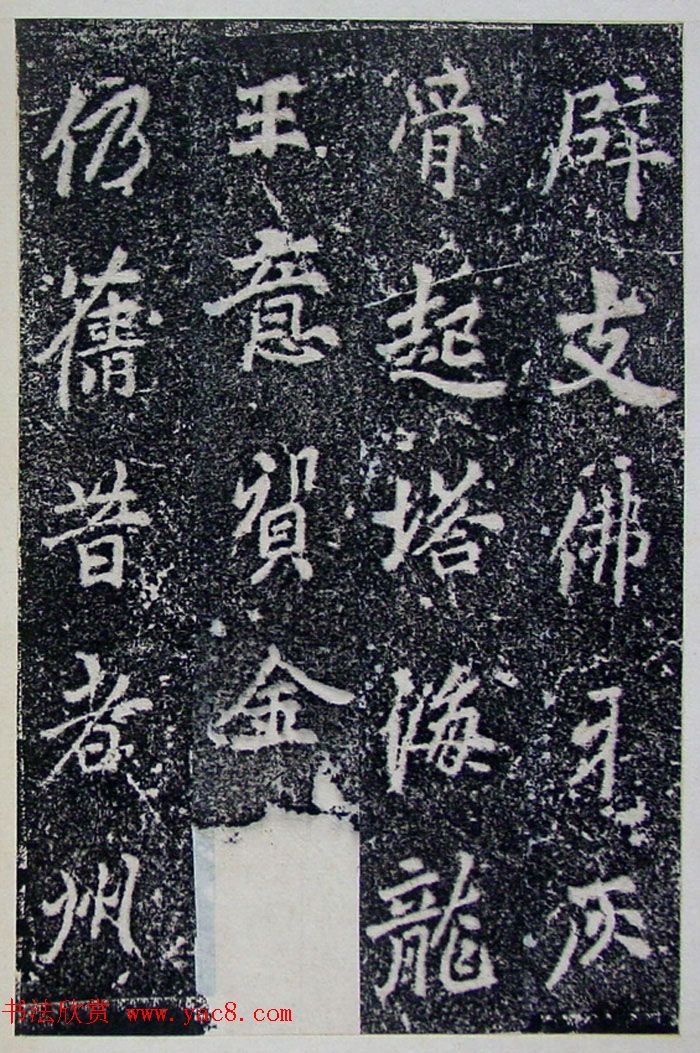 辟支佛牙灰
骨起塔海龍
王意金
仍舊昔者州
书法欣赏 www.yac8.com